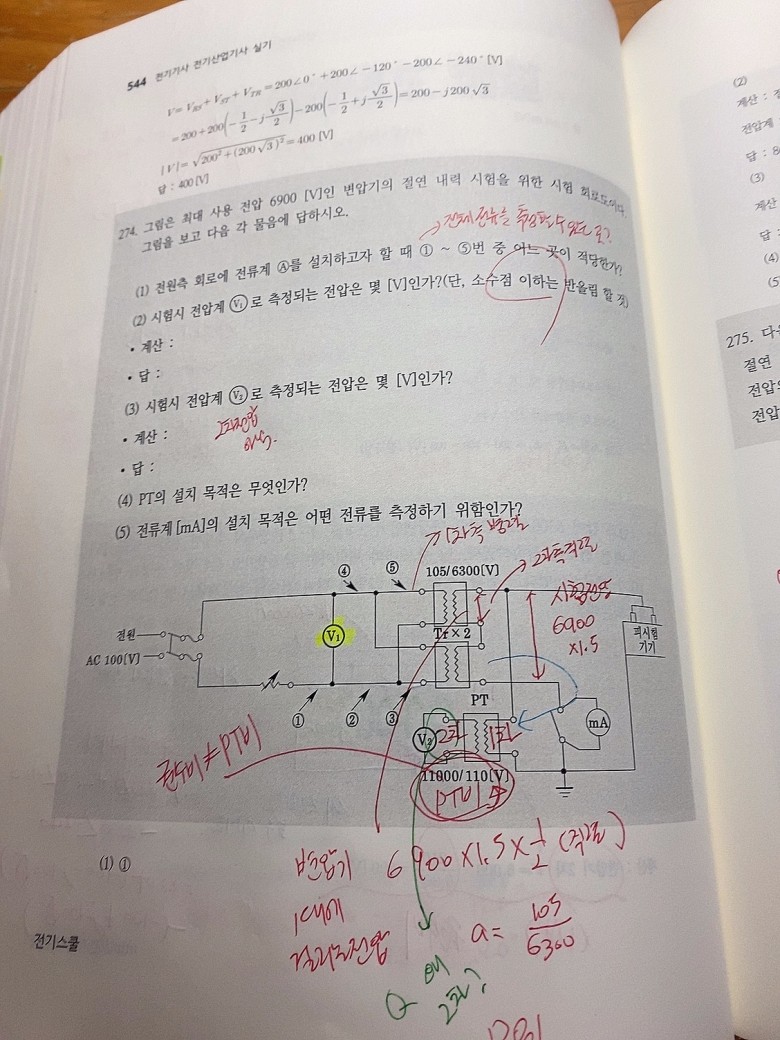 544 전기기사 전기산업기사 실기
V = V_RS + V_ST + V_TR = 200∠0° + 200∠-120° - 200∠-240° [V]
= 200 + 200(-1/2 - j√3/2) - 200(-1/2 + j√3/2) = 200 - j200√3
|V| = √(200² + (200√3)²) = 400 [V]
답 : 400 [V]
274. 그림은 최대 사용 전압 6900 [V]인 변압기의 절연 내력 시험을 위한 시험 회로도이다.
그림을 보고 다음 각 물음에 답하시오.
(1) 전원측 회로에 전류계 Ⓐ를 설치하고자 할 때 ① ~ ⑤번 중 어느 곳이 적당한가?
(2) 시험시 전압계 V₁로 측정되는 전압은 몇 [V]인가?(단, 소수점 이하는 반올림 할 것)
• 계산 :
• 답 :
(3) 시험시 전압계 V₂로 측정되는 전압은 몇 [V]인가?
• 계산 :
2차전압
• 답 :
(4) PT의 설치 목적은 무엇인가?
(5) 전류계 [mA]의 설치 목적은 어떤 전류를 측정하기 위함인가?
→ 1차측 병렬
→ 2차측직렬
④ ⑤ 105/6300[V]
시험전압
6900
×1.5
전원
AC 100[V]
V₁
Tr×2
피시험
기기
① ② ③
PT
mA
V₂ 2차 1차
권수비 ≠ PT비
11000/110[V]
PT비
(1) ①
변압기 6900×1.5×1/2 (직렬)
1대에
걸리는전압
a = 105/6300
전기스쿨
Q 왜
2차?
(2)
계산 :
전압계
답 : 8
(3)
계산
답 :
(4)
(5
275. 다
절연
전압
전압